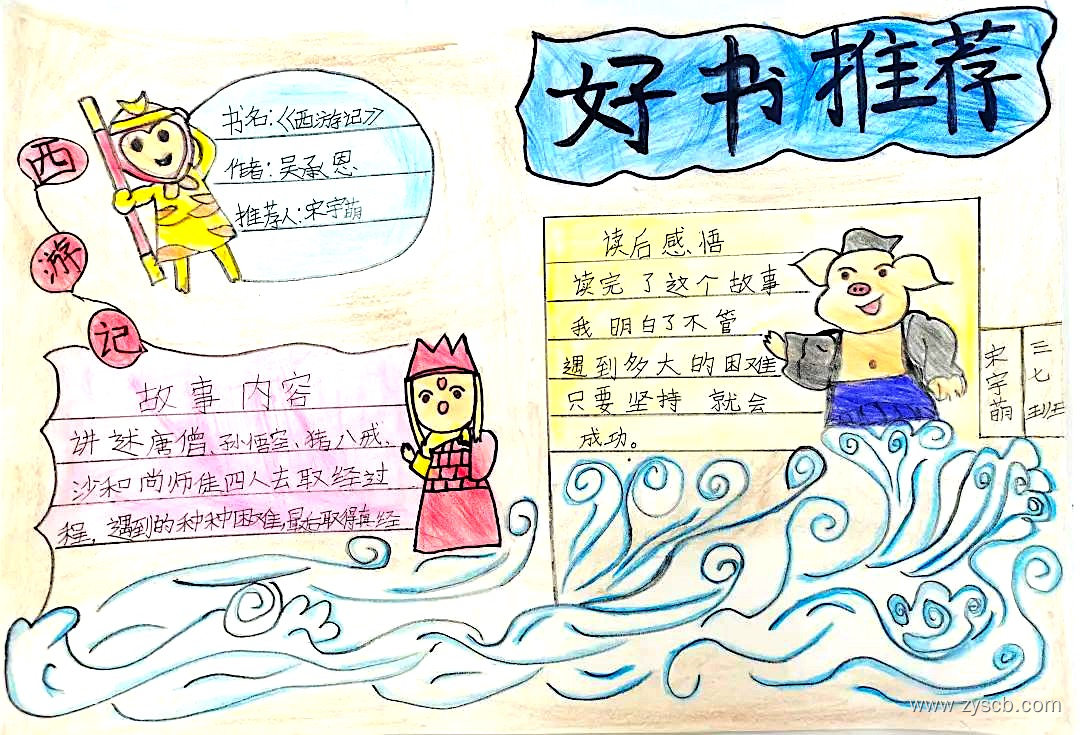 好书推荐
西
游
记
书名：《西游记》
作者：吴承恩
推荐人：宋宇萌
故事内容
讲述唐僧、孙悟空、猪八戒、
沙和尚师徒四人去取经过
程，遇到的种种困难，最后取得真经
读后感悟
读完了这个故事
我明白了不管
遇到多大的困难
只要坚持就会
成功。
三七班
宋宇萌
www.zyscb.com